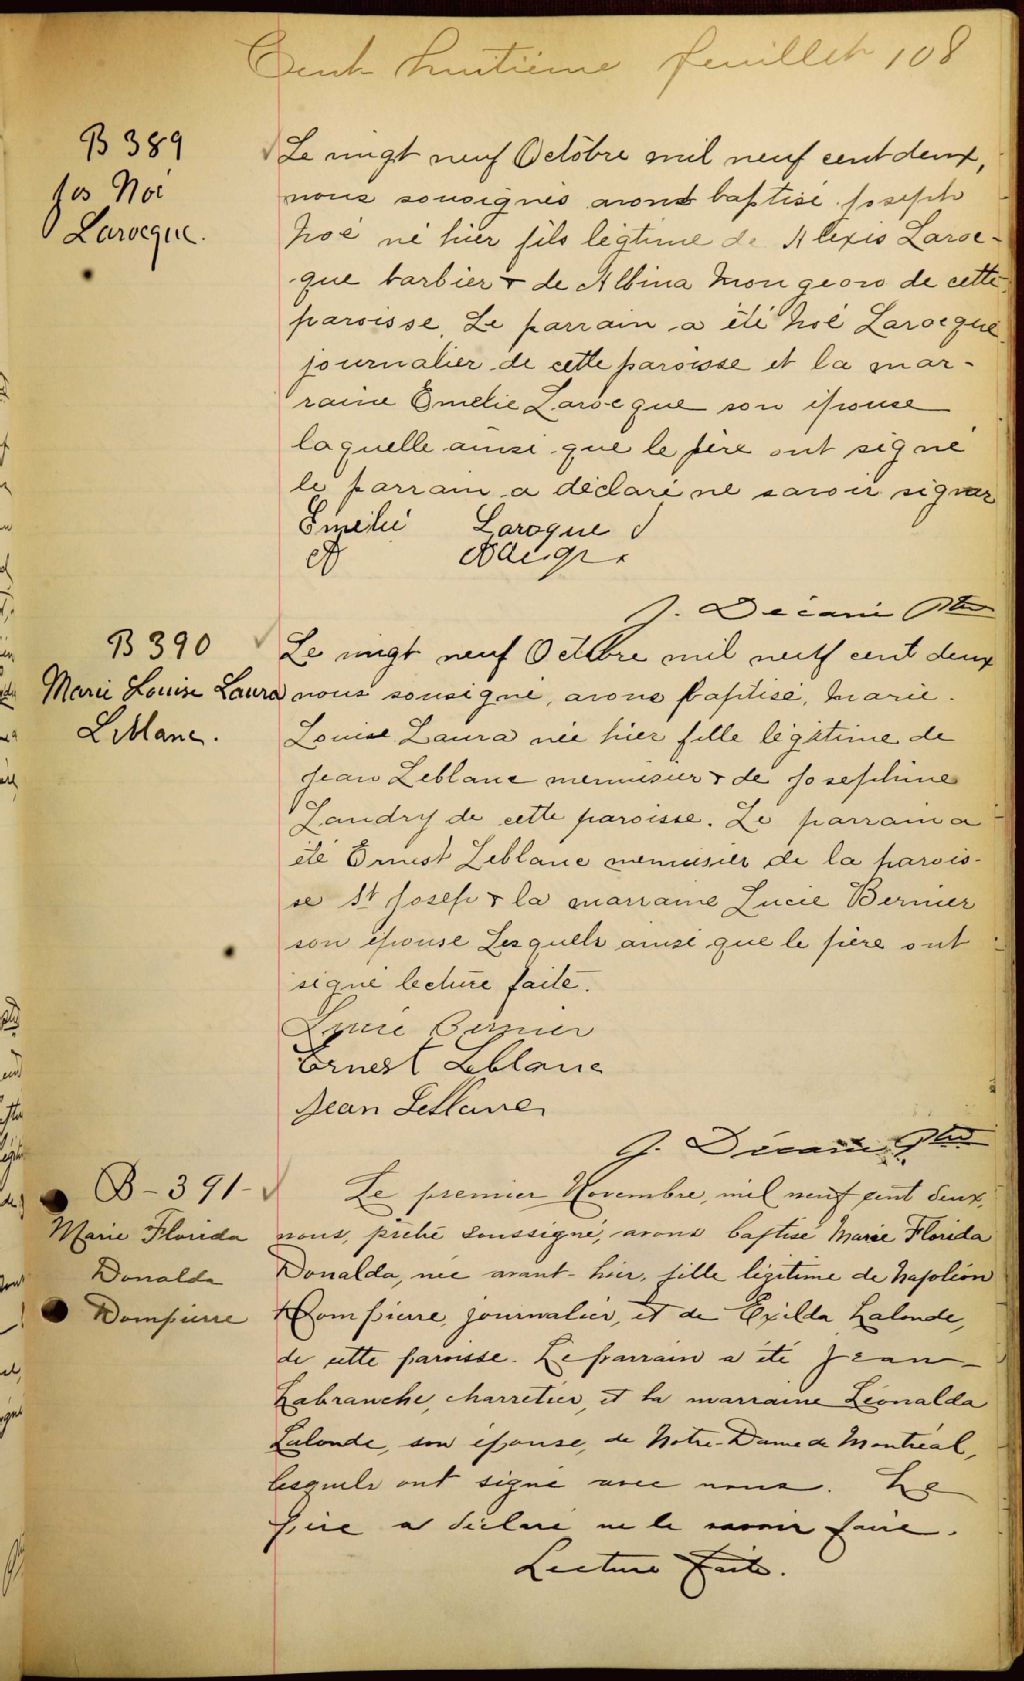 Cent huitième feuillet 108
B 389
Jos Noé
Larocque.
Le vingt neuf Octobre mil neuf cent deux,
nous sousignés avons baptisé Joseph
Noé né hier fils légtime de Alexis Laroc-
que barbier & de Albina Mongeon de cette
paroisse. Le parrain a été Noé Larocque
journalier de cette paroisse et la mar-
raine Emélie Larocque son épouse
laquelle ainsi que le père ont signé
le parrain a déclaré ne savoir signer
Emélie Laroque
A
J. Décarie Ptre
B 390
Marie Louise Laura
Leblanc.
Le vingt neuf Octobre mil neuf cent deux
nous sousigné, avons baptisé, Marie
Louise Laura née hier fille légitime de
Jean Leblanc menuisier & de Josephine
Landry de cette paroisse. Le parrain a
été Ernest Leblanc menuisier de la parois-
se St Josep & la marraine Lucie Bernier
son épouse Lesquels ainsi que le père ont
signé lecture faite.
Lucie Bernier
Ernest Leblanc
Jean Leblanc
J. Décarie Ptre
B - 391 -
Marie Florida
Donalda
Dompierre
Le premier Novembre, mil neuf cent deux,
nous, prêtre soussigné, avons baptisé Marie Florida
Donalda, née avant-hier, fille légitime de Napoléon
Dompierre, journalier, et de Exilda Lalonde,
de cette paroisse. Le parrain a été Jean
Labranche, charretier, et la marraine Léonalda
Lalonde, son épouse, de Notre-Dame de Montréal,
lesquels ont signé avec nous. Le
père a déclaré ne le savoir faire.
Lecture faite.